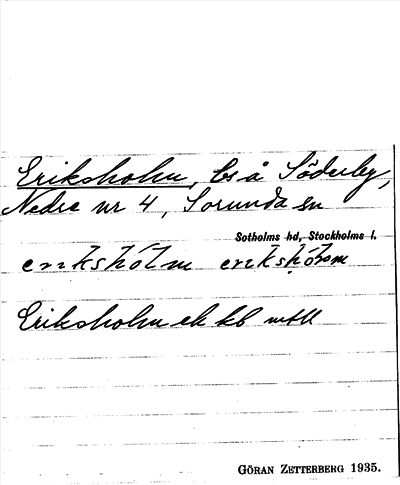 Eriksholm, bs å Söderby,
Nedre nr 4, Sorunda sn
Sotholms hd, Stockholms l.
Eriksholm ek kb mtll
GÖRAN ZETTERBERG 1935.